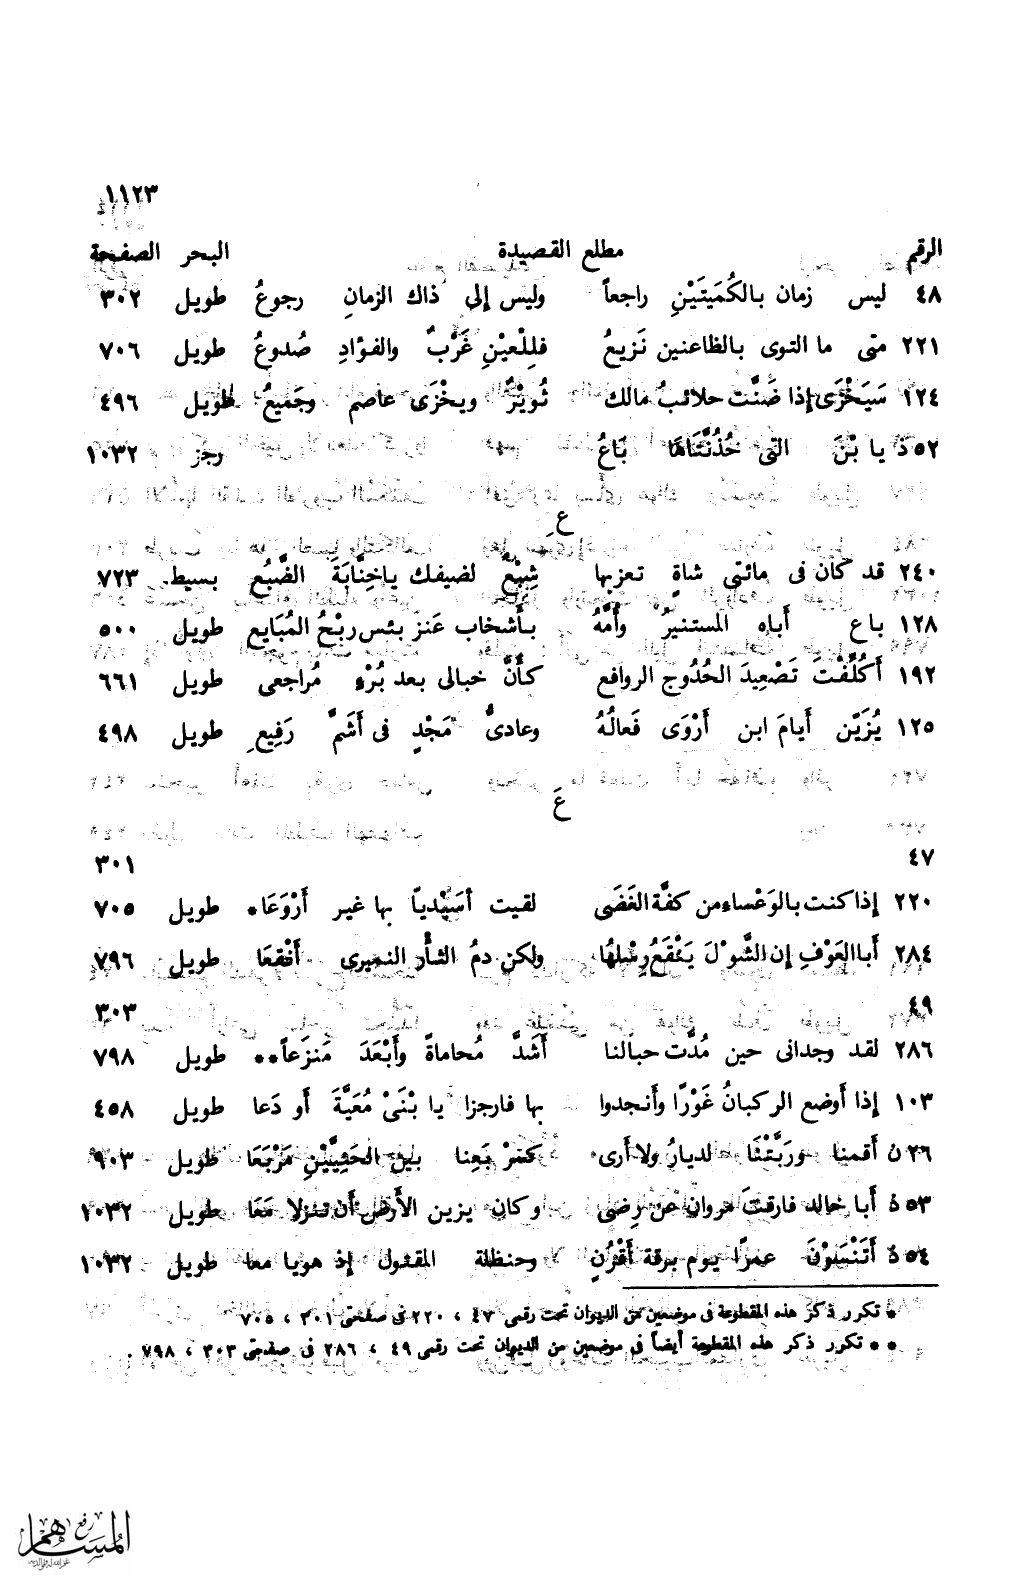 ١١٢٣
الرقم مطلع القصيدة البحر الصفحة
٤٨ ليس زمان بالكُمَيتَيْنِ راجعاً وليس إلى ذاك الزمانِ رجوعُ طويل ٣٠٢
٢٢١ متى ما التوى بالظاعنين نَزيعُ فللِعْيْنِ غَرْبٌ والفؤادِ صُدوعُ طويل ٧٠٦
١٢٤ سَيَخْزَى إذا ضَنَّت حلائبُ مالك ثُويْرٌ ويخْزَى عاصم وجَميعُ طويل ٤٩٦
٥٢ ذ يا بْنَ التى حُذُنَّتَاهَا بَاعُ رجز ١٠٣٢
عِ
٢٤٠ قد كان فى مائتى شاةٍ تعزبها شِبْعٌ لضيفك ياخِنَّابَةَ الضَّبُعِ بسيط ٧٢٣
١٢٨ باع أَباه المستنيرُ وأُمَّهُ بأَشخاب عَنز بئس رِبْحُ المُبَايعِ طويل ٥٠٠
١٩٢ أَكُلِّفْتَ تَصْعِيدَ الحُدُوجِ الروافع كأَنَّ خبالى بعد بُرْءٍ مُراجعى طويل ٦٦١
١٢٥ يُزَيّن أَيامَ ابن أَرْوَى فَعالُهُ وعادىُّ مَجْدٍ فى أَشَمَّ رَفِيعِ طويل ٤٩٨
عَ
٤٧ ٣٠١
٢٢٠ إذا كنت بالوَعْساءِ من كفَّة الغَضَى لقيت أُسَيْدياً بها غير أَرْوَعَا* طويل ٧٠٥
٢٨٤ أَبا العَوْفِ إن الشَّوْلَ يَنْقَعُ رِسْلهُا ولكن دمُ الثأْر النميرى أَنْقعَا طويل ٧٩٦
٤٩ ٣٠٣
٢٨٦ لقد وجدانى حين مُدَّت حبالنا أَشَدَّ مُحاماةً وأَبْعَدَ مَنزَعاً** طويل ٧٩٨
١٠٣ إذا أَوضع الركبانُ غَوْرًا وأَنجدوا بها فارجزا يا بْنَىْ مُعَيَّةَ أَو دَعا طويل ٤٥٨
٢٦ ن أَقمنا ورَبَّتْنَا الديارُ ولا أَرى كمرْبَعِنا بين الحَنِيَّيْنِ مَرْبَعَا طويل ٩٠٣
٥٣ ذ أَبا خالد فارقتَ مروان عن رِضًى وكان يزين الأَرضَ أَن تنزلا مَعَا طويل ١٠٣٢
٥٤ ذ أَتَنْسَوْنَ عمرًا يوم برقة أَقْرُنٍ وحنظلة المقتول إذ هويا معا طويل ١٠٣٢
* تكرر ذكر هذه المقطوعة فى موضعين من الديوان تحت رقمى ٤٧ ، ٢٢٠ فى صفحتى ٣٠١ ، ٧٠٥
* * تكرر ذكر هذه المقطوعة أيضاً فى موضعين من الديوان تحت رقمى ٤٩ ، ٢٨٦ فى صفحتى ٣٠٣ ، ٧٩٨ .